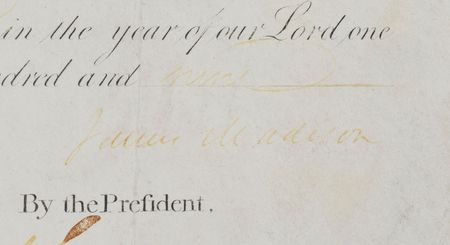 in the year of our Lord one
dred and
James Madison
By the Preſident,